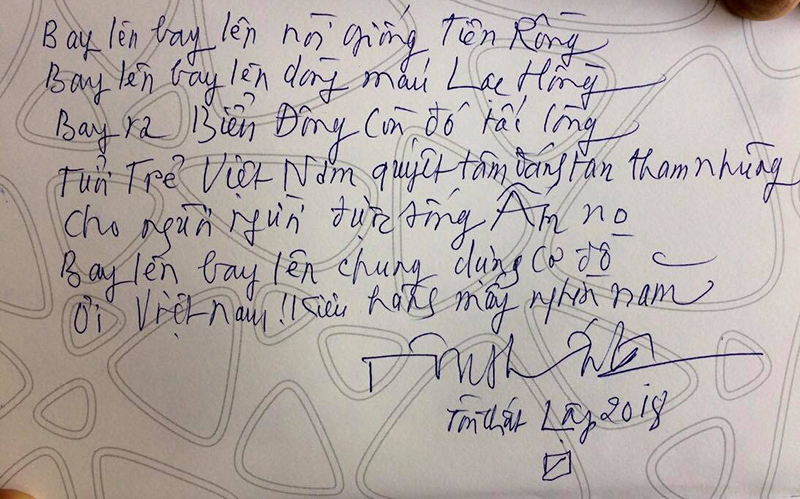 Bay lên bay lên nòi giống Tiên Rồng
Bay lên bay lên dòng máu Lạc Hồng
Bay ra Biển Đông còn đó tấc lòng
Tuổi Trẻ Việt Nam quyết tâm đánh tan tham nhũng
Cho người người được sống Ấm no
Bay lên bay lên chung dựng cơ đồ
Ơi Việt Nam! Kiêu hãng mấy nghìn năm
Tôn Thất Lập 2018